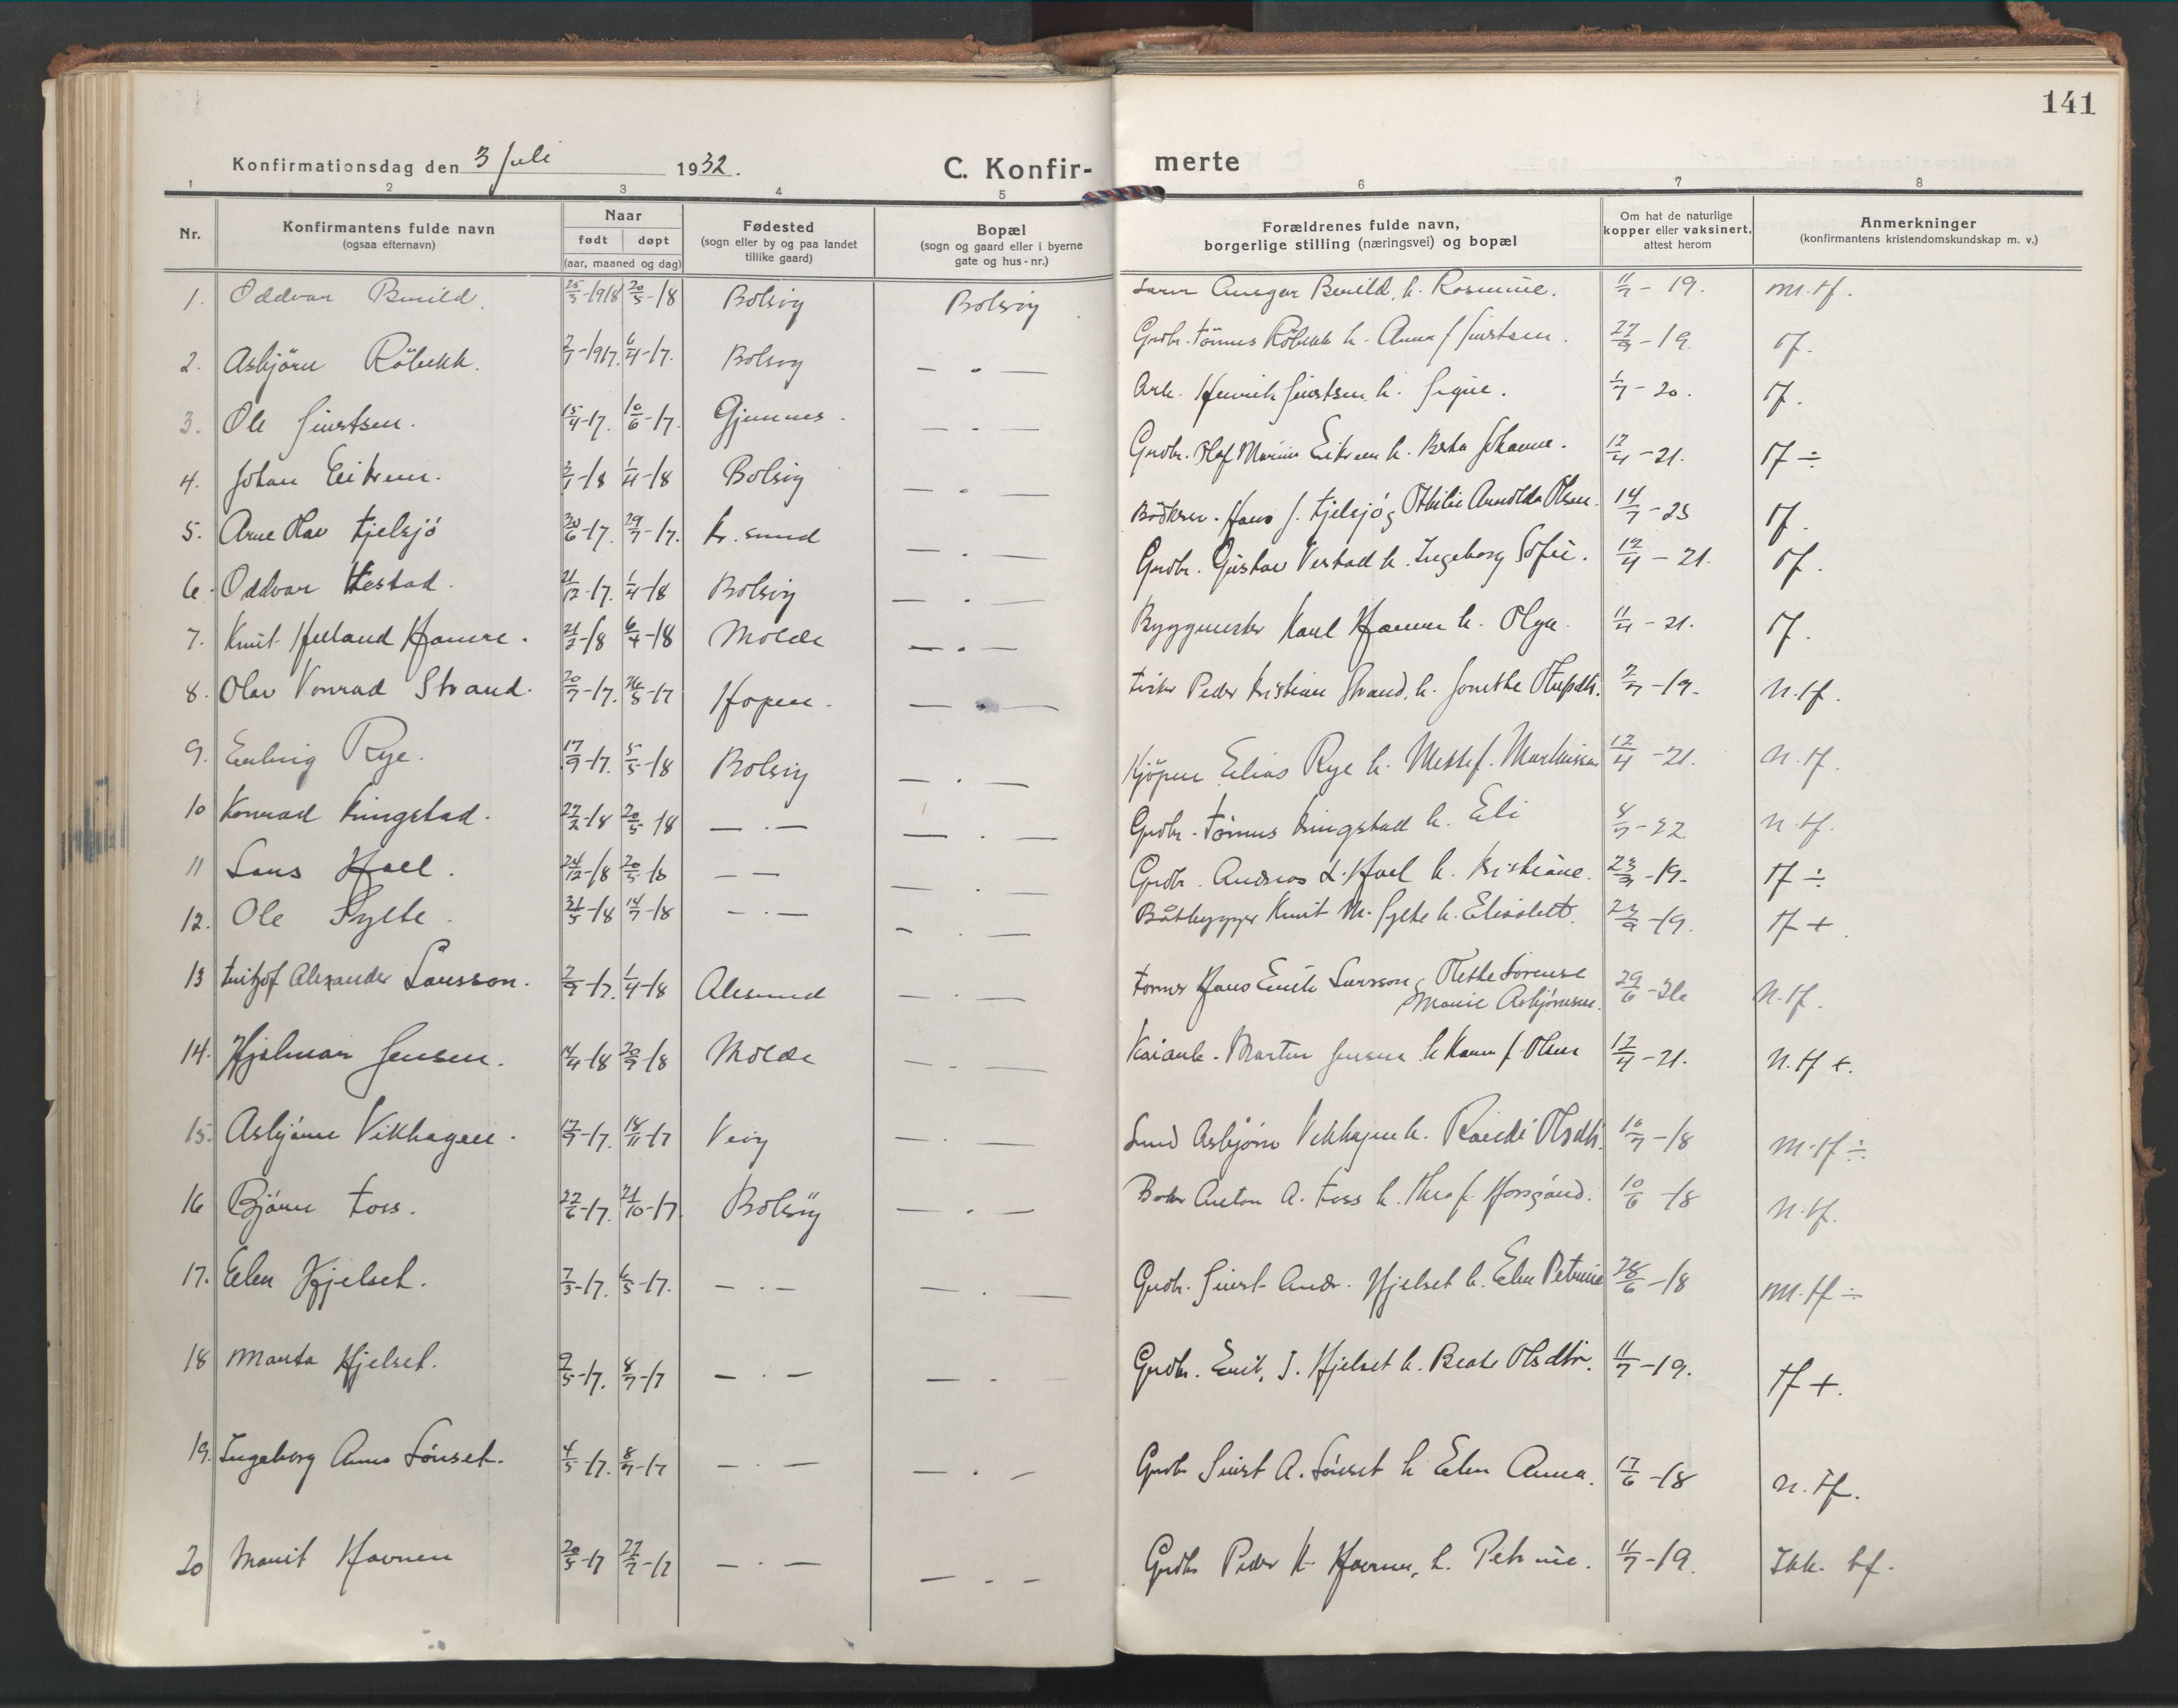 141
Konfirmationsdag den 3 Juli 1932.
C. Konfir- merte
1 2 3 4 5 6 7 8
Nr. Konfirmantens fulde navn (ogsaa efternavn) Naar født døpt (aar, maaned og dag) Fødested (sogn eller by og paa landet tillike gaard) Bopæl (sogn og gaard eller i byerne gate og hus-nr.) Forældrenes fulde navn, borgerlige stilling (næringsvei) og bopæl Om hat de naturlige kopper eller vaksinert, attest herom Anmerkninger (konfirmantens kristendomskundskap m. v.)
1. Oddvar 20/5-18 Bolsøy Bolsøy Ansgar h. 11/7-19. m.tf.
2. Asbjörn Röbekk. 6/4-17. Bolsøy — " — Grdbr. Tönnes Röbekk h. Anna f. Sivertsen. 27/9-19. tf.
3. Ole Sivertsen. 15/4-17. 10/6-17. Gjemnes. — " — Arb. Henrik Sivertsen h. Signe. 1/7-20. tf.
4. Johan Eikrem. 1/4-18 Bolsøy — " — Grdbr. Olaf Marius Eikrem h. Berta Johanne. 12/4-21. tf ÷
5. Arne Olav Kjelsjö 29/7-17. Kr.sund — " — Bödker. Hans J. Kjelsjö, Othilie Arnolda Olsen. 14/7-23 tf.
6. Oddvar Vestad. 21/12-17. 1/4-18 Bolsøy — " — Grdbr. Gustav Vestad h. Ingeborg Sofie. 12/4-21. tf.
7. Knut Helland Hamre. 21/2-18 6/4-18 Molde — " — Byggmester Karl Hamre h. Olga. 11/4-21. tf.
8. Olav Konrad Strand. 20/7-17. Hopen. — " — Peder Kristian Strand, h. 2/7-19. n.tf.
9. Erling Rye. 17/9-17. 5/5-18 Bolsøy — " — Elias Rye h. Mette f. 12/4-21. n.tf.
10 Konrad Kringstad. 27/2-18 20/5-18 — " — — " — Grdbr. Tönnes Kringstad h. Eli 8/7-22 n.tf.
11 Lars Hoel. 24/12-18 20/5-18 — — — " — Grdbr. Andreas L. Hoel h. Kristiane. 23/9-19. tf ÷
12. Ole Sylte. 31/5-18 14/7-18 — " — — " — Båtbygger Knut M. Sylte h. Elisabet. 23/9-19. tf +
13 Alexander Larsson. 2/9-17. 1/4-18 Alesund — " — Former Hans Emil Larsson, Marie Asbjörnsen. 29/6-26 n.tf.
14. Hjalmar Jensen. 14/4-18 20/9-18 Molde — " — Kaiarb. Martin Jensen h. f. Olsen 12/4-21. n.tf +.
15. Asbjörn Vikhagen. 17/9-17. 18/11-17 Veøy — " — Smed Asbjörn Vikhagen h. Randi Olsdtr. 10/7-18 m.tf ÷
16 Björn Foss. 22/6-17. 21/10-17. Bolsöy — " — Anton A. Foss h. Thea f. 10/6-18 n.tf.
17. Elen Hjelset. 7/3-17. 6/5-17. — " — — " — Grdbr. Sivert Andr. Hjelset h. Elen Petrine 28/6-18 m.tf ÷
18 Marta Hjelset. 9/5-17. 8/7-17 — " — — " — Grdbr. Emil. J. Hjelset h. Beate Olsdtr. 11/7-19. tf +.
19. Ingeborg Anna Sönset. 4/5-17. 8/7-17 — " — — " — Grdbr Sivert A. Sönset h Elen Anna. 17/6-18 n.tf.
20 Marit Havnen 20/5-17 22/7-17 — " — — " — Grdbr Peder K. Havnen, h. Petrine. 11/7-19. Ikk. tf.